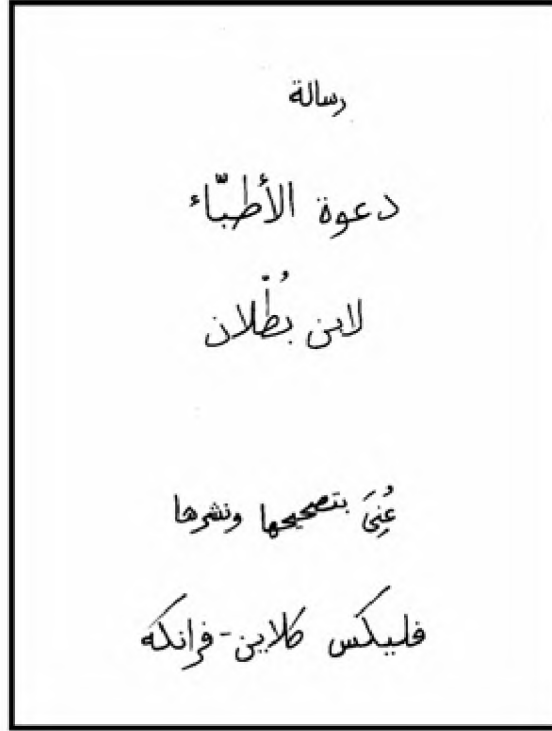 رسالة
دعوة الأطبّاء
لابن بُطْلان
عُنِيَ بتصحيحها ونشرها
فليكس كلاين-فرانكه